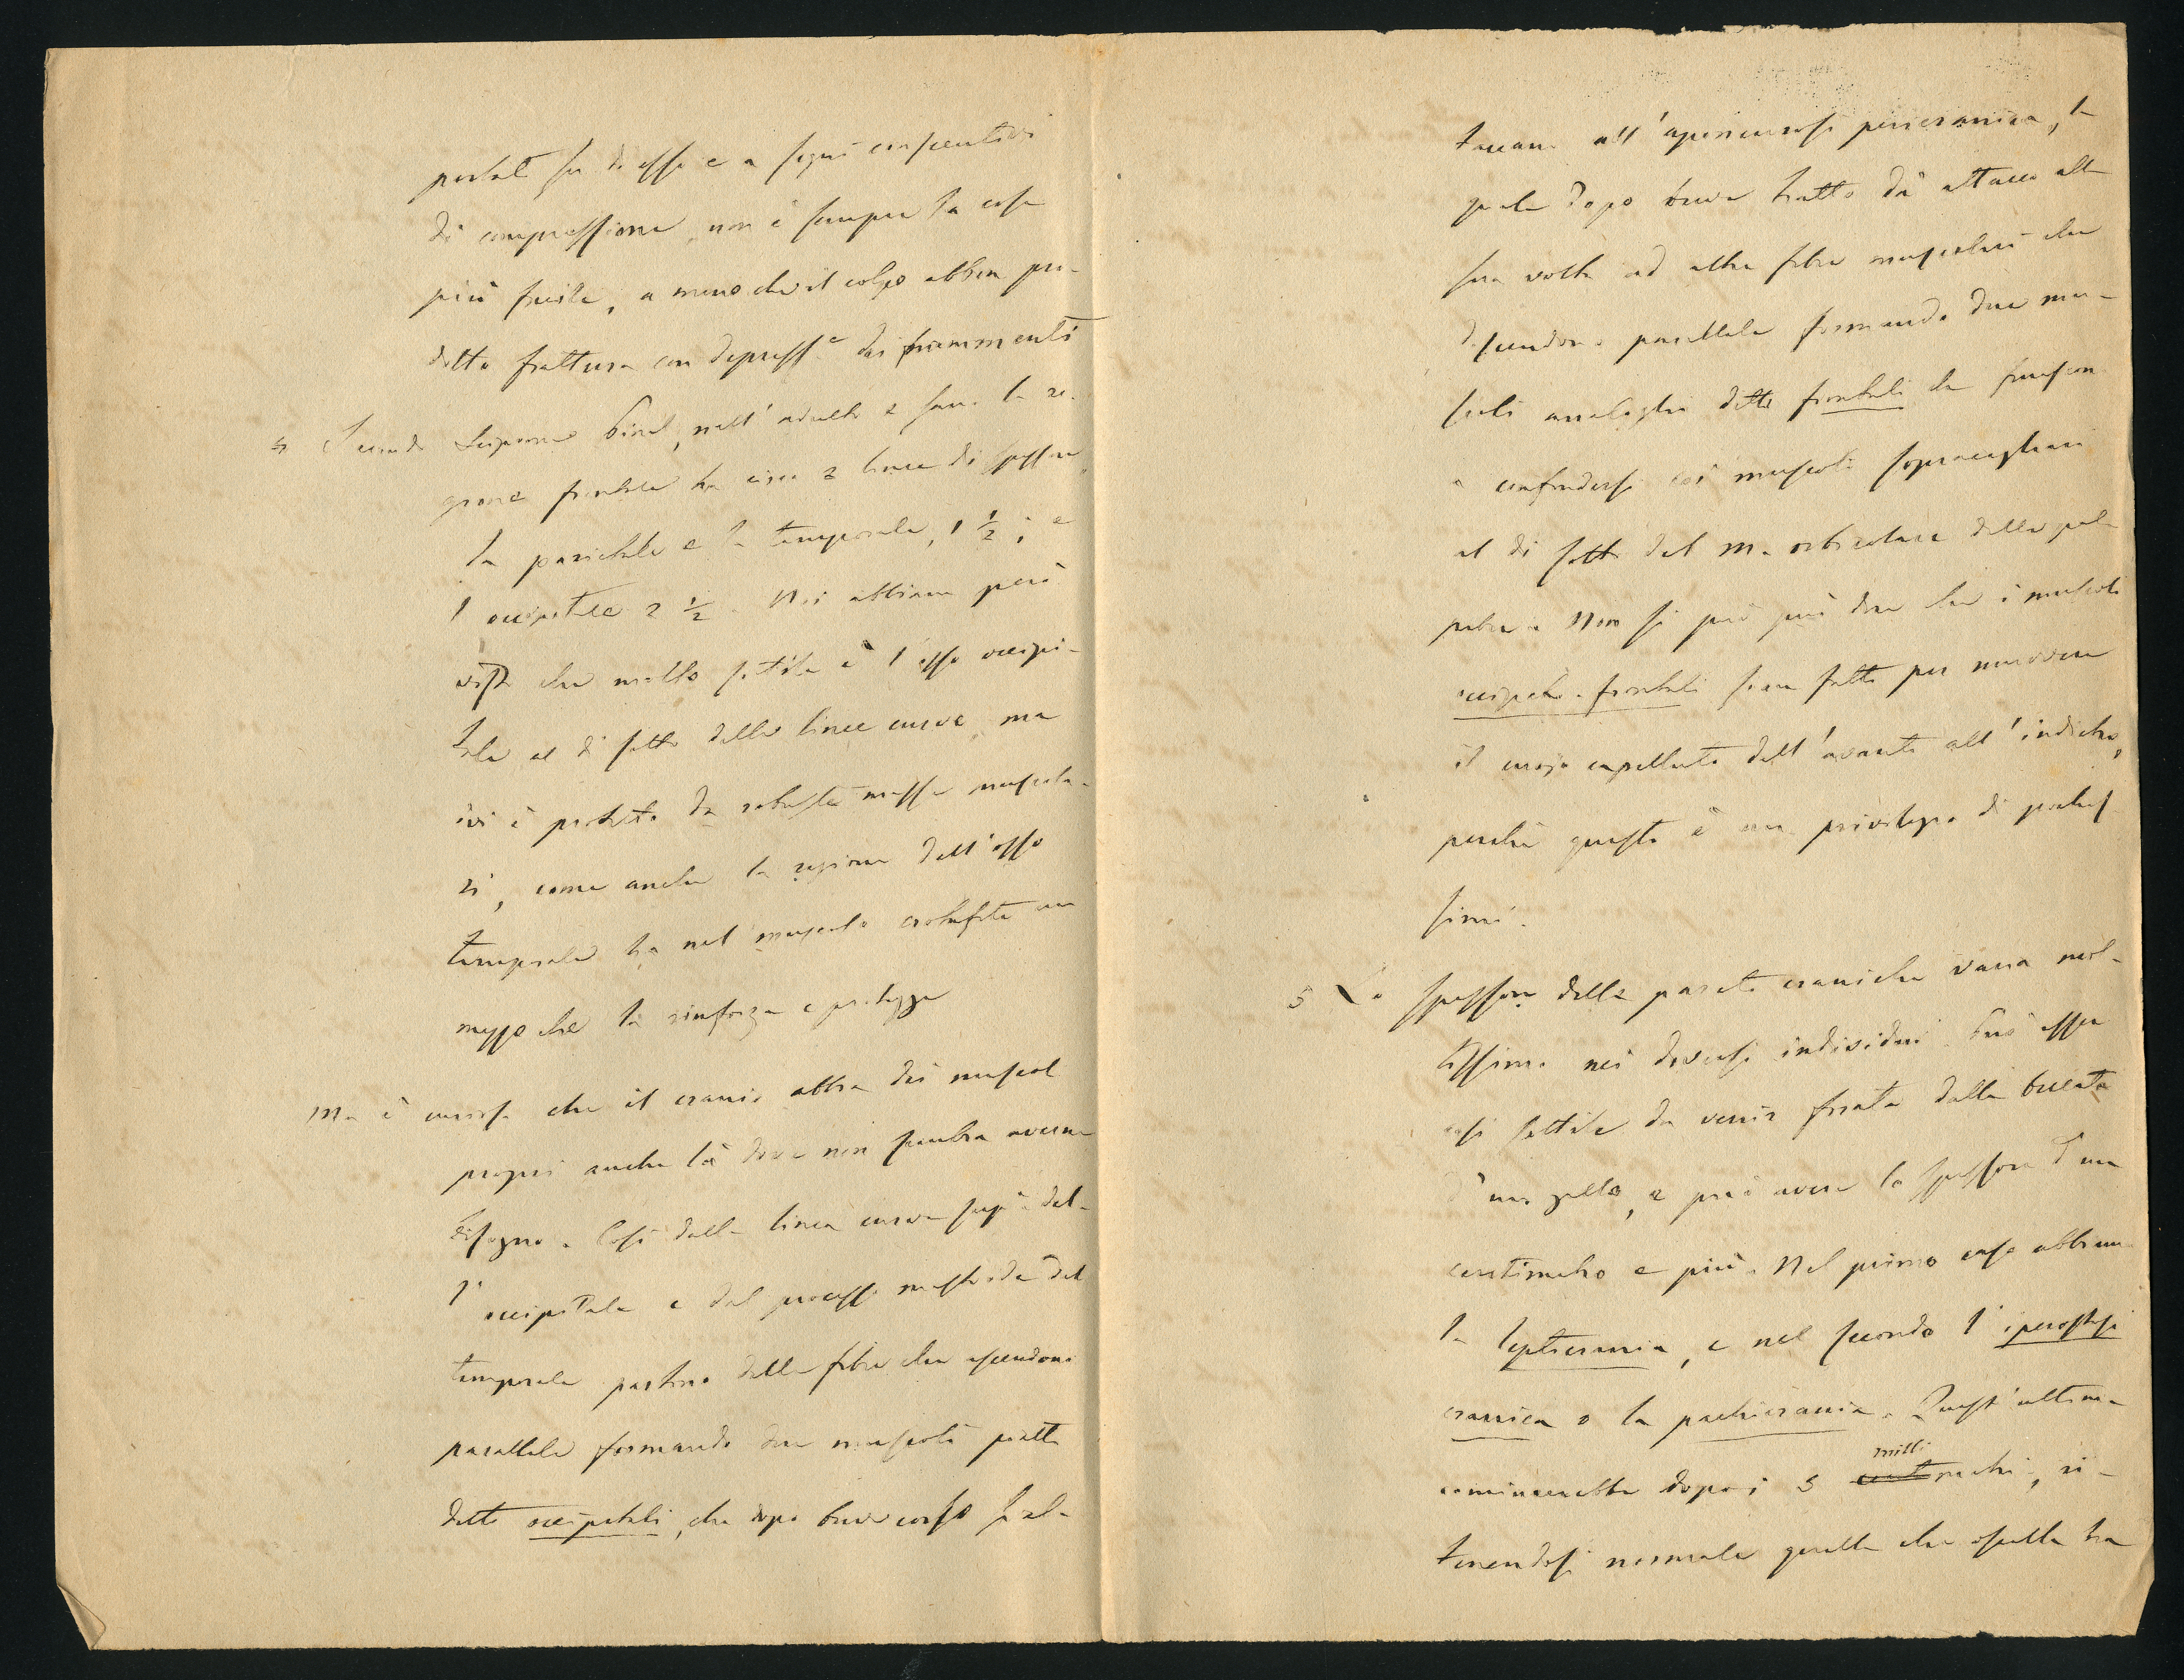 portati su di esso e a segni consecutivi
di compressione, non è sempre la cosa
più facile, a meno che il colpo abbia pro-
dotto frattura con depress.e dei frammenti
4 Secondo Pinel, nell'adulto e sano la re-
gione frontale ha circa 2 linee di spessore,
la parietale e la temporale, 1 ½; e
l'occipitale 2 ½. Noi abbiam però
visto che molto sottile è l'osso occipi-
tale al di sotto delle linee curve, ma
ivi è protetto da robuste masse muscola-
ri, come anche la regione dell'osso
temporale ha nel muscolo crotafite un
mezzo che la rinforza e protegge
Ma è curioso che il cranio abbia dei muscoli
propri anche là dove non sembra averne
bisogno. Così dalla linea curva sup.e del-
l'occipitale e dal processo mastoide del
temporale partono delle fibre che ascendono
parallele formando due muscoli piatti
detti occipitali, che dopo breve corso s'at-
taccano all'aponeurosi pericranica, la
quale dopo breve tratto dà attacco alla
sua volta ad altre fibre muscolari che
discendono parallele formando due mu-
scoli analoghi detti frontali che finiscon
a confondersi coi muscoli sopraccigliari
al di sotto del m. orbicolare delle pal-
pebre. Non si può già dire che i muscoli
occipito-frontali sian fatti per muovere
il cuojo capelluto dall'avanti all'indietro,
perché questo è un privilegio di pochis-
simi.
5 Lo spessore delle pareti craniche varia mol-
tissimo nei diversi individui. Può esser
così sottile da venir forata dalla beccata
d'un gallo, e può avere lo spessore d'un
centimetro e più. Nel primo caso abbiamo
la leptocrania, e nel secondo l'iperostosi
cranica o la pachicrania. Quest'ultima
comincerebbe dopo i 5 millimetri, ri-
tenendosi normale quella che oscilla tra